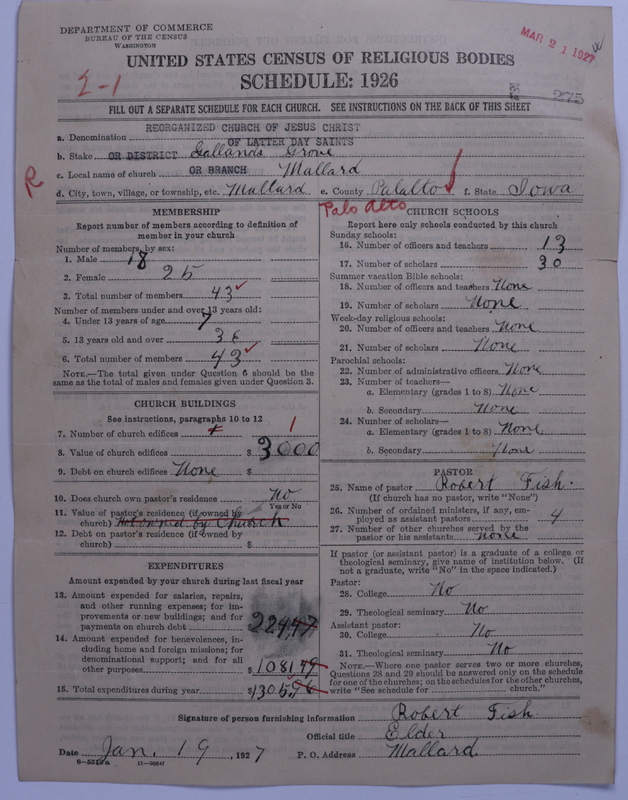 DEPARTMENT OF COMMERCE
BUREAU OF THE CENSUS
WASHINGTON
MAR 21 1927
UNITED STATES CENSUS OF RELIGIOUS BODIES
SCHEDULE: 1926
2-1
275
FILL OUT A SEPARATE SCHEDULE FOR EACH CHURCH. SEE INSTRUCTIONS ON THE BACK OF THIS SHEET
a. Denomination REORGANIZED CHURCH OF JESUS CHRIST OF LATTER DAY SAINTS
b. Stake OR DISTRICT Gallands Grove
c. Local name of church OR BRANCH Mallard
R
d. City, town, village, or township, etc. Mallard e. County Palalto f. State Iowa
Palo Alto
MEMBERSHIP
Report number of members according to definition of
member in your church
Number of members, by sex:
1. Male 18
2. Female 25
3. Total number of members 43
Number of members under and over 13 years old:
4. Under 13 years of age 7
5. 13 years old and over 36
6. Total number of members 43
NOTE.—The total given under Question 6 should be
same as the total of males and females given under Question 3.
CHURCH BUILDINGS
See instructions, paragraphs 10 to 12
7. Number of church edifices 1
8. Value of church edifices $ 3000
9. Debt on church edifices None $
10. Does church own pastor's residence No
Yes or No
11. Value of pastor's residence (if owned by
church) Not owned by Church
12. Debt on pastor's residence (if owned by
church) $
EXPENDITURES
Amount expended by your church during last fiscal year
13. Amount expended for salaries, repairs,
and other running expenses; for im-
provements or new buildings; and for
payments on church debt 224.47
14. Amount expended for benevolences, in-
cluding home and foreign missions; for
denominational support; and for all
other purposes $ 1081.49
15. Total expenditures during year $ 1305.96
CHURCH SCHOOLS
Report here only schools conducted by this church
Sunday schools:
16. Number of officers and teachers 13
17. Number of scholars 30
Summer vacation Bible schools:
18. Number of officers and teachers None
19. Number of scholars None
Week-day religious schools:
20. Number of officers and teachers None
21. Number of scholars None
Parochial schools:
22. Number of administrative officers None
23. Number of teachers—
a. Elementary (grades 1 to 8) None
b. Secondary None
24. Number of scholars—
a. Elementary (grades 1 to 8) None
b. Secondary None
PASTOR
25. Name of pastor Robert Fish.
(If church has no pastor, write "None")
26. Number of ordained ministers, if any, em-
ployed as assistant pastors 4
27. Number of other churches served by the
pastor or his assistants none
If pastor (or assistant pastor) is a graduate of a college or
theological seminary, give name of institution below. (If
not a graduate, write "No" in the space indicated.)
Pastor:
28. College No
29. Theological seminary No
Assistant pastor:
30. College No
31. Theological seminary No
NOTE.—Where one pastor serves two or more churches,
Questions 28 and 29 should be answered only on the schedule
for one of the churches; on the schedules for the other churches,
write "See schedule for church."
Signature of person furnishing information Robert Fish
Official title Elder
Date Jan. 19, 1927 P. O. Address Mallard